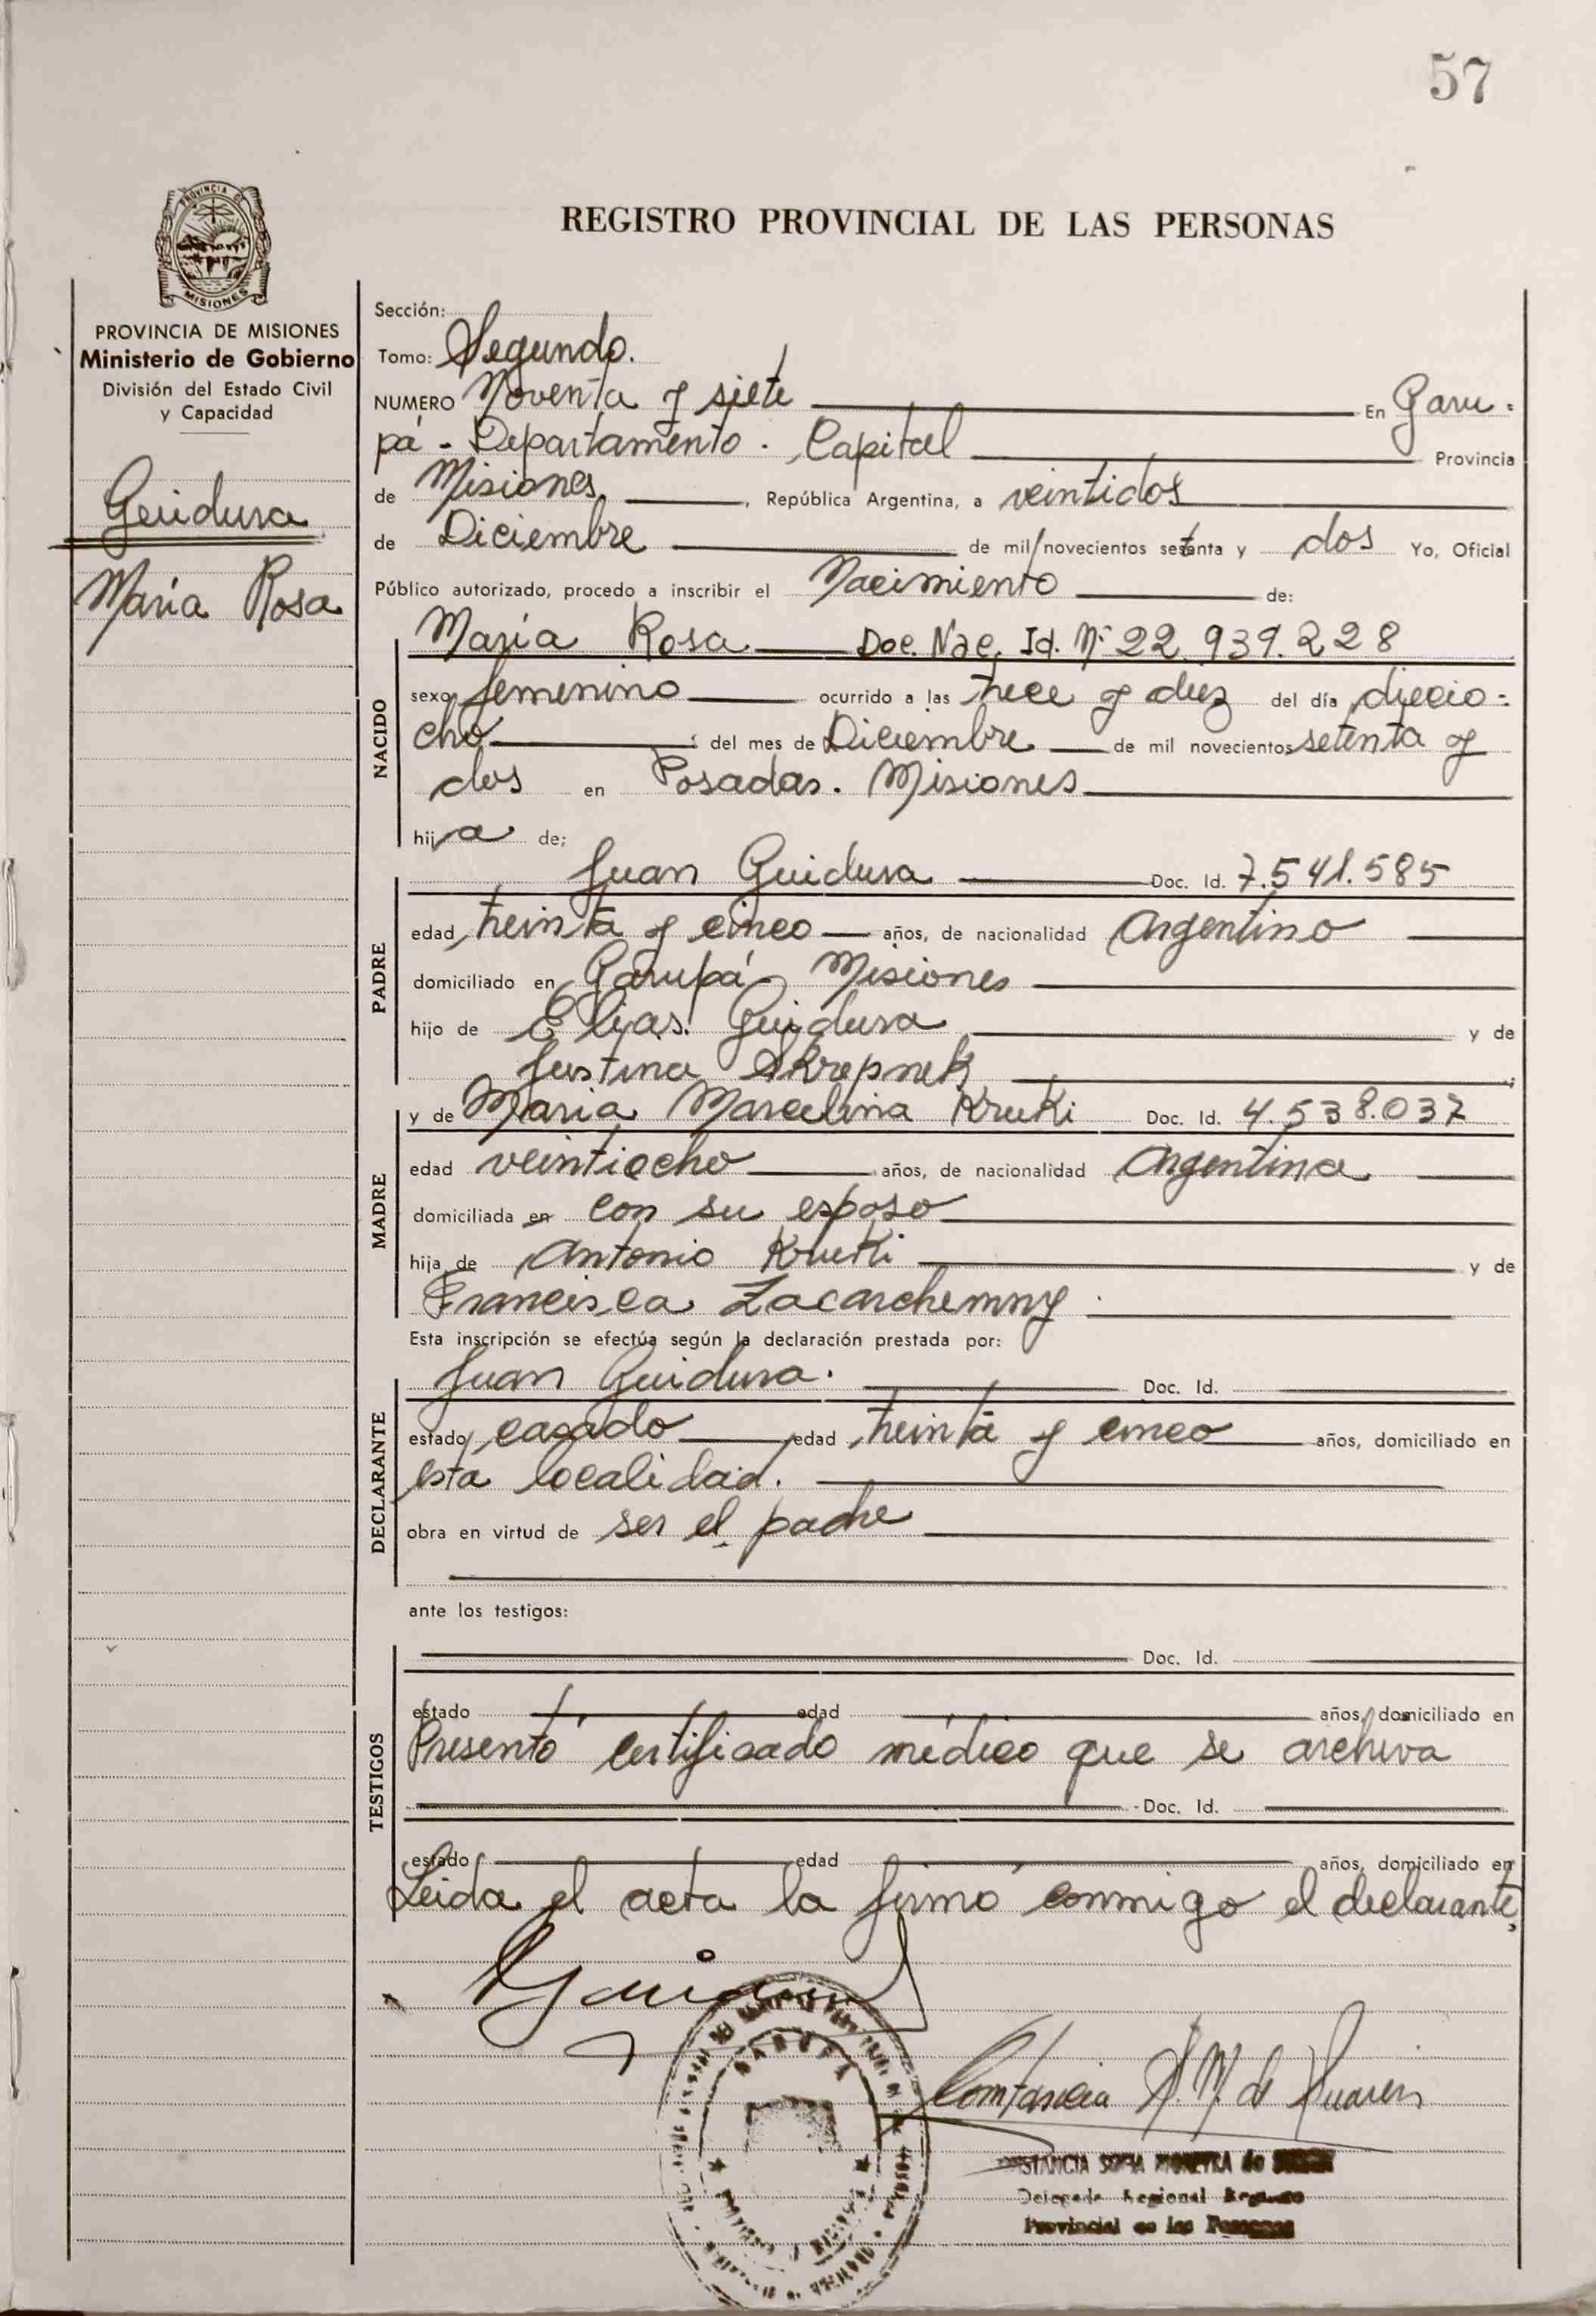 57
REGISTRO PROVINCIAL DE LAS PERSONAS
PROVINCIA DE MISIONES
MISIONES
PROVINCIA DE MISIONES
Ministerio de Gobierno
División del Estado Civil
y Capacidad
Guidura
María Rosa
Sección:
Tomo: Segundo.
NUMERO Noventa y siete En Garu=
pá - Departamento. Capital Provincia
de Misiones, República Argentina, a veintidos
de Diciembre de mil novecientos setenta y dos Yo, Oficial
Público autorizado, procedo a inscribir el Nacimiento de:
NACIDO
María Rosa Doc. Nac. Id. Nº 22.939.228
sexo femenino ocurrido a las trece y diez del día diecio=
cho del mes de Diciembre de mil novecientos setenta y
dos en Posadas. Misiones
hija de;
PADRE
Juan Guidura Doc. Id. 7.541.585
edad treinta y cinco años, de nacionalidad Argentino
domiciliado en Garupá - Misiones
hijo de Elías Guidura y de
Justina Skrepnek
MADRE
y de Maria Marcelina Kruki Doc. Id. 4.538.037
edad veintiocho años, de nacionalidad Argentina
domiciliada en con su esposo
hija de Antonio Kruki y de
Francisca Zacarchemny.
Esta inscripción se efectúa según la declaración prestada por:
DECLARANTE
Juan Guidura. Doc. Id.
estado casado edad treinta y cinco años, domiciliado en
esta localidad.
obra en virtud de ser el padre
ante los testigos:
TESTIGOS
Doc. Id.
estado edad años, domiciliado en
Presentó certificado médico que se archiva
Doc. Id.
estado edad años, domiciliado en
Leida el acta la firmó conmigo el declarante,
GARUPA
Constancia S. M. de Suarez
SOFIA MOREYRA de
Delegada Regional Registro
Provincial de las Personas